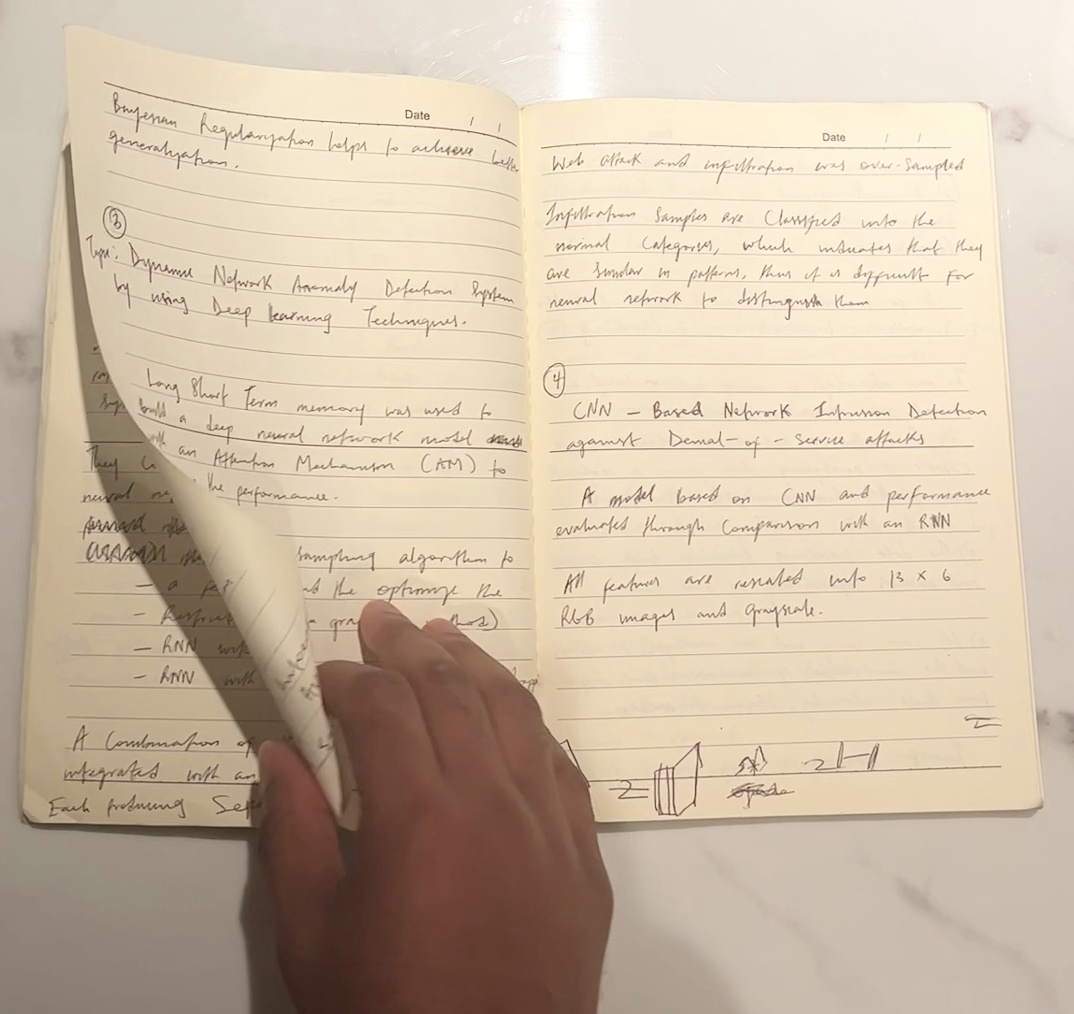 Date / /
Bayesian Regularization helps to achieve
generalization.
3
Topic: Dynamic Network Anomaly Detection System
by using Deep learning Techniques.
Long Short Term memory was used to
build a deep neural network model
with an Attention Mechanism (AM) to
the performance.
They
neural
sampling algorithm to
- a the optimize the
-
- RNN with
- RNN with
A Combination of
integrated with an
Each producing
Date / /
Web attack and infiltration was over-sampled
Infiltration samples are Classified into the
normal Categories, which indicates that they
are similar in patterns, thus it is difficult for
neural network to distinguish them
4
CNN - Based Network Intrusion Detection
against Denial-of-service attacks
A model based on CNN and performance
evaluated through Comparison with an RNN
All features are rescaled into 13 x 6
RGB images and grayscale.